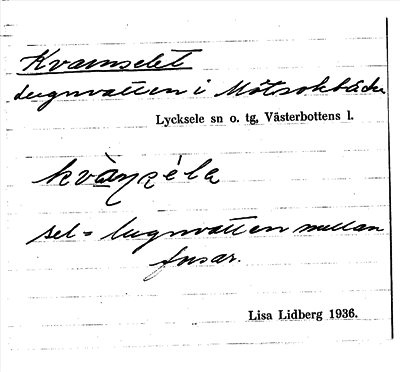 Kvarnselet
Lugnvatten i Mötsokbäcken
Lycksele sn o. tg, Västerbottens l.
sel = lugnvatten mellan
fusar.
Lisa Lidberg 1936.